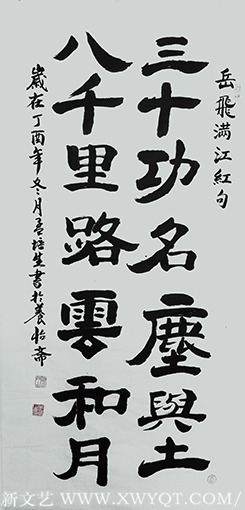 岳飛满江紅句
三十功名塵與土
八千里路雲和月
歲在丁酉年冬月孟培生書於養怡斋
新文艺 WWW.XWYQT.COM